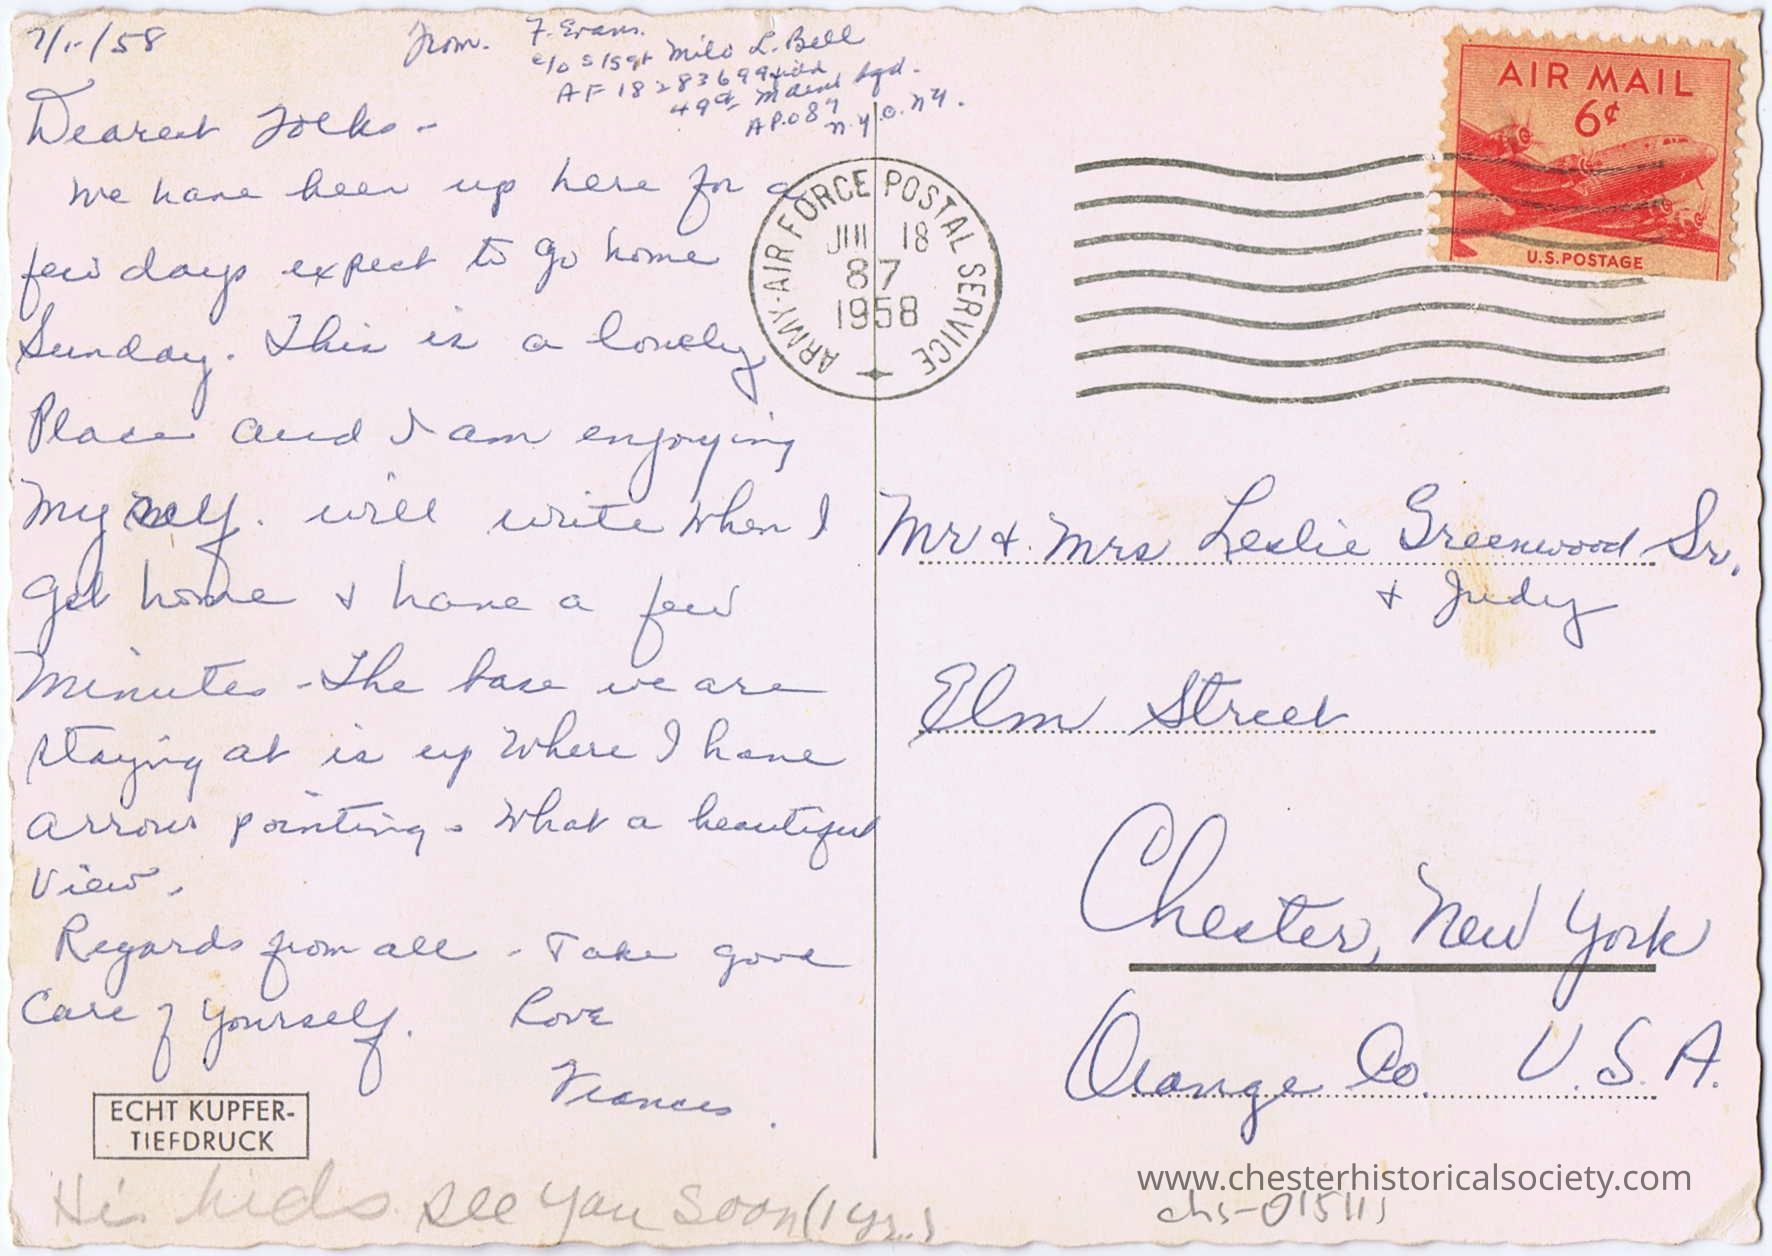 7/1-/58
From. F. Evans.
c/o S/Sgt Milo L. Bell
AF 18283699
49th Maint Sqd.
APO 87
N.Y.O. N.Y.
Dearest Folks -
We have been up here for a
few days expect to go home
Sunday. This is a lovely
Place and I am enjoying
Myself. will write when I
Get home & have a few
Minutes - The base we are
staying at is up where I have
arrow pointing - What a beautiful
View.
Regards from all - Take good
Care of yourself.
Love
Frances.
ECHT KUPFER-
TIEFDRUCK
Hi kids see you soon (1 yr.)
ARMY-AIR FORCE POSTAL SERVICE
JUL 18
87
1958
AIR MAIL
6¢
U.S. POSTAGE
Mr & Mrs Leslie Greenwood Sr.
& Judy
Elm Street
Chester, New York
Orange Co. U.S.A.
www.chesterhistoricalsociety.com
chs-015111